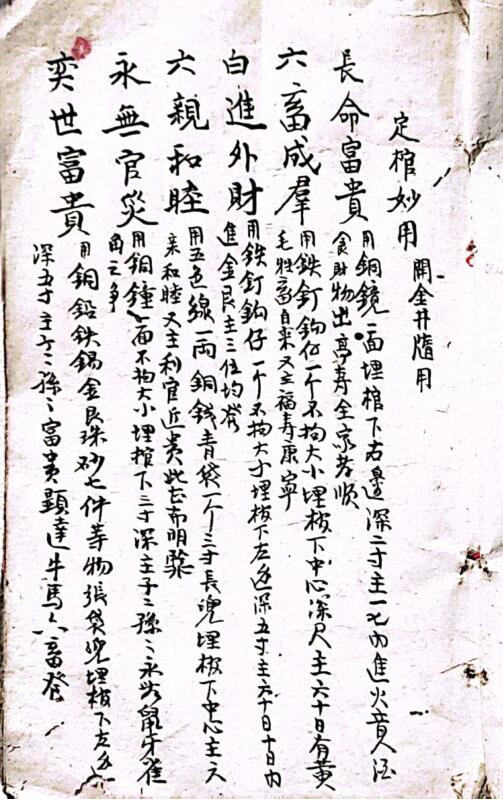 定棺妙用 開金井隨用
長命富貴 用銅鏡一面埋棺下右邊深二寸主一七內進火音人酒
食財物出高壽全家芳順
六畜成羣 用鉄釘鈎仔一个不拘大小埋板下中心深尺主六十日有黃
毛牲畜自来又主福寿康寧
白進外財 用鉄釘鈎仔一个不拘大小埋板下左边深五寸主六十日十日內
進金艮主三位均發
六親和睦 用五色線一両銅钱青袋一个三寸長兜埋板下中心主六
亲和睦又主利官近贵此法布明
永無官災 用銅鐘一面不拘大小埋棺下三寸深主子二孫二永無鼠牙雀
角之争
奕世富貴 用銅鉛鉄锡金艮珠砂七件等物張袋兜埋板下左边
深五寸主子二孫二富贵顯達牛馬六畜發